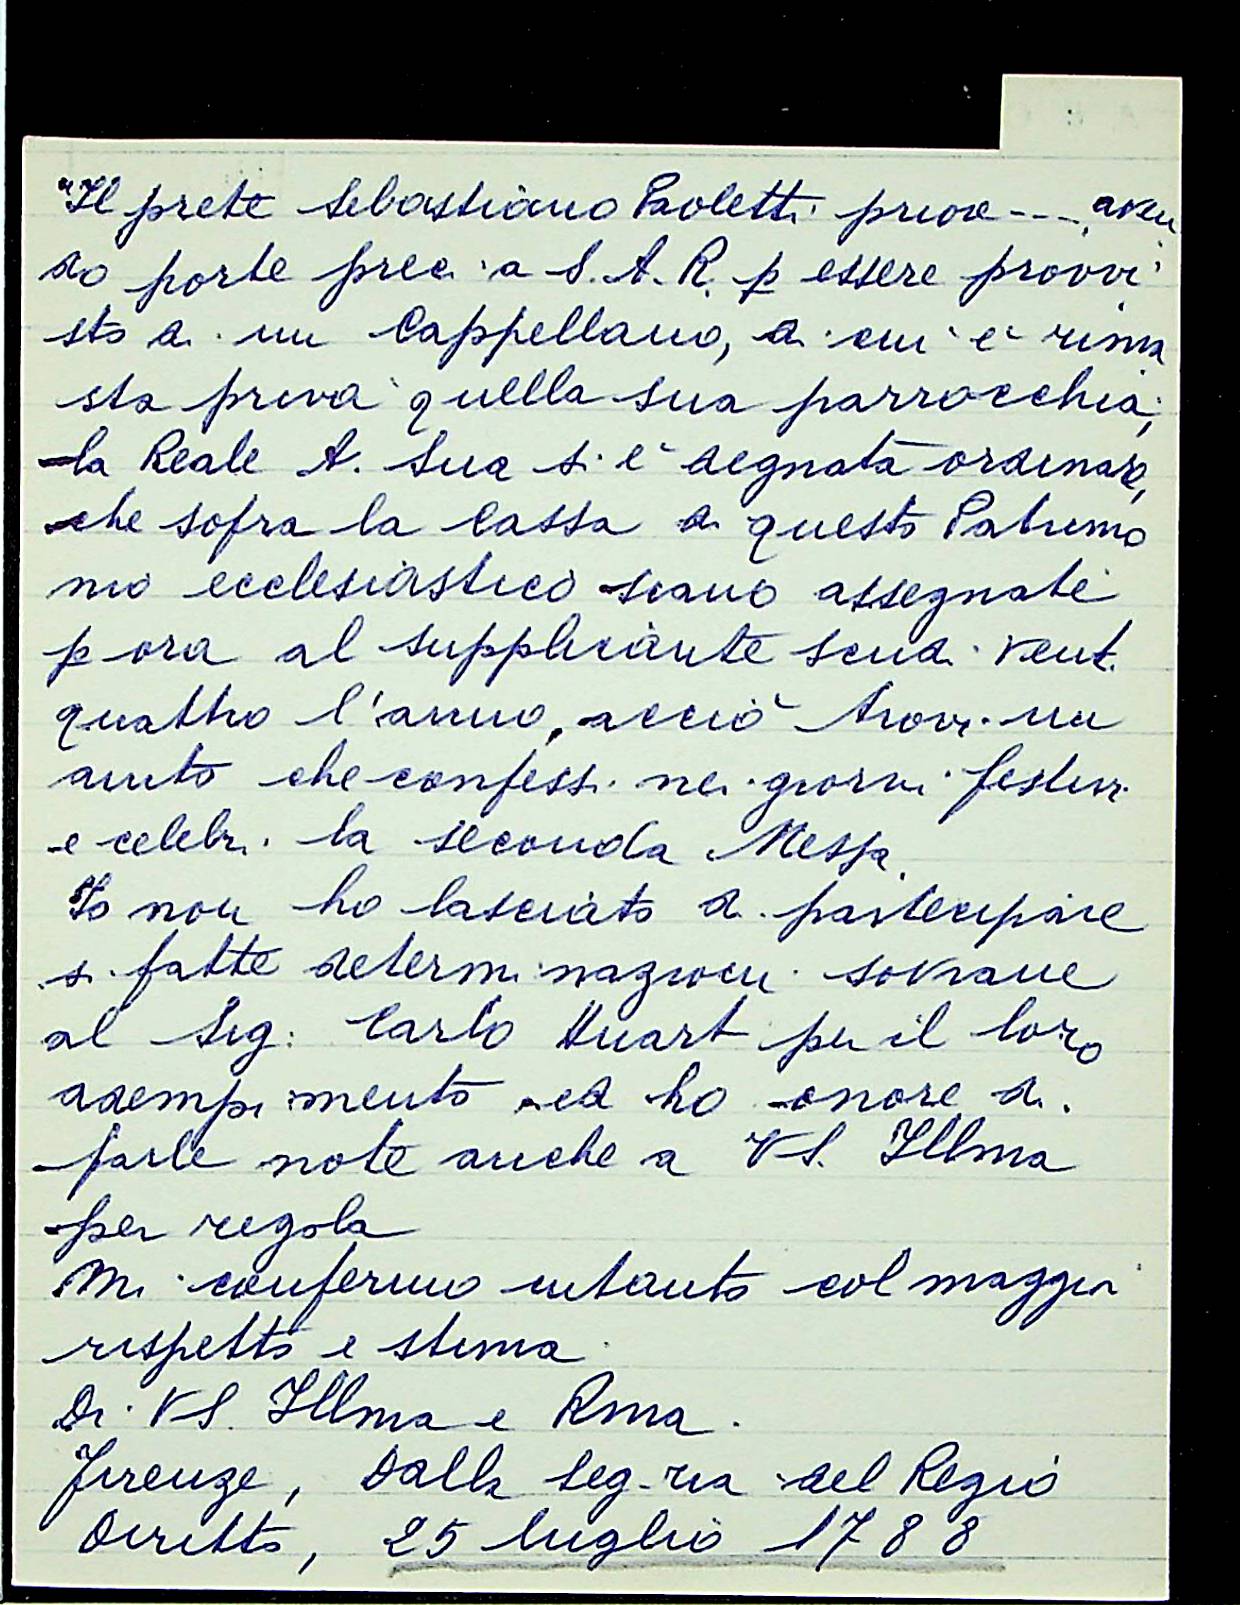 "Il prete Sebastiano Paoletti priore ---, aven
do porte preci a S. A. R. p essere provvi
sto di un Cappellano, di cui è rima
sta priva quella sua parrocchia,
la Reale A. Sua si è degnata ordinare,
che sopra la Cassa di questo Patrimo
nio ecclesiastico siano assegnati
p ora al supplicante scudi venti
quattro l'anno, acciò trovi un
aiuto che confessi nei giorni festivi
e celebri la seconda Messa.
Io non ho lasciato di partecipare
si fatte determinazioni sovrane
al Sig: Carlo Huart per il loro
adempimento ed ho onore di
farle note anche a VS. Illma
per regola
Mi confermo intanto col maggior
rispetto e stima
Di VS. Illma e Rma.
Firenze, Dalla Seg-ria del Regio
Diritto, 25 luglio 1788